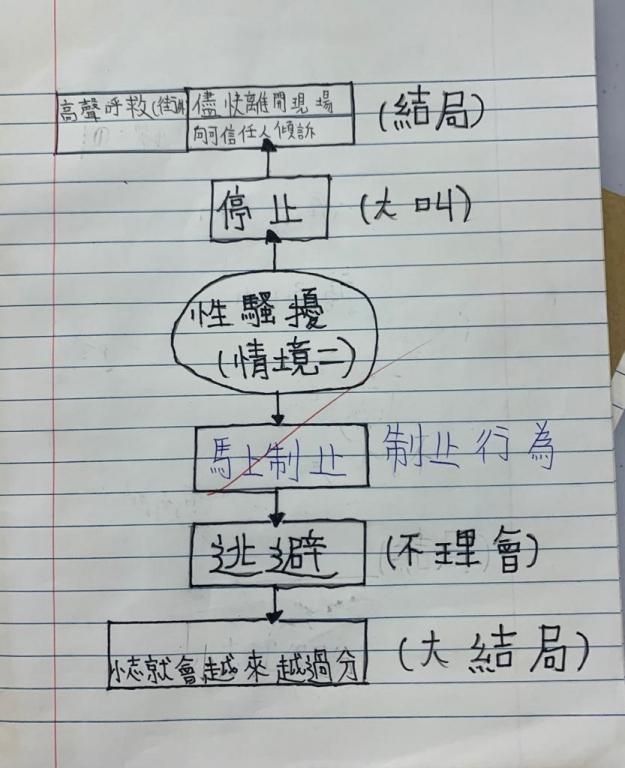 高聲呼救(街
儘快離開現場 (結局)
向可信任人傾訴
停止 (大叫)
性騷擾
(情境二)
馬上制止 制止行為
逃避 (不理會)
小志就會越來越過分 (大結局)